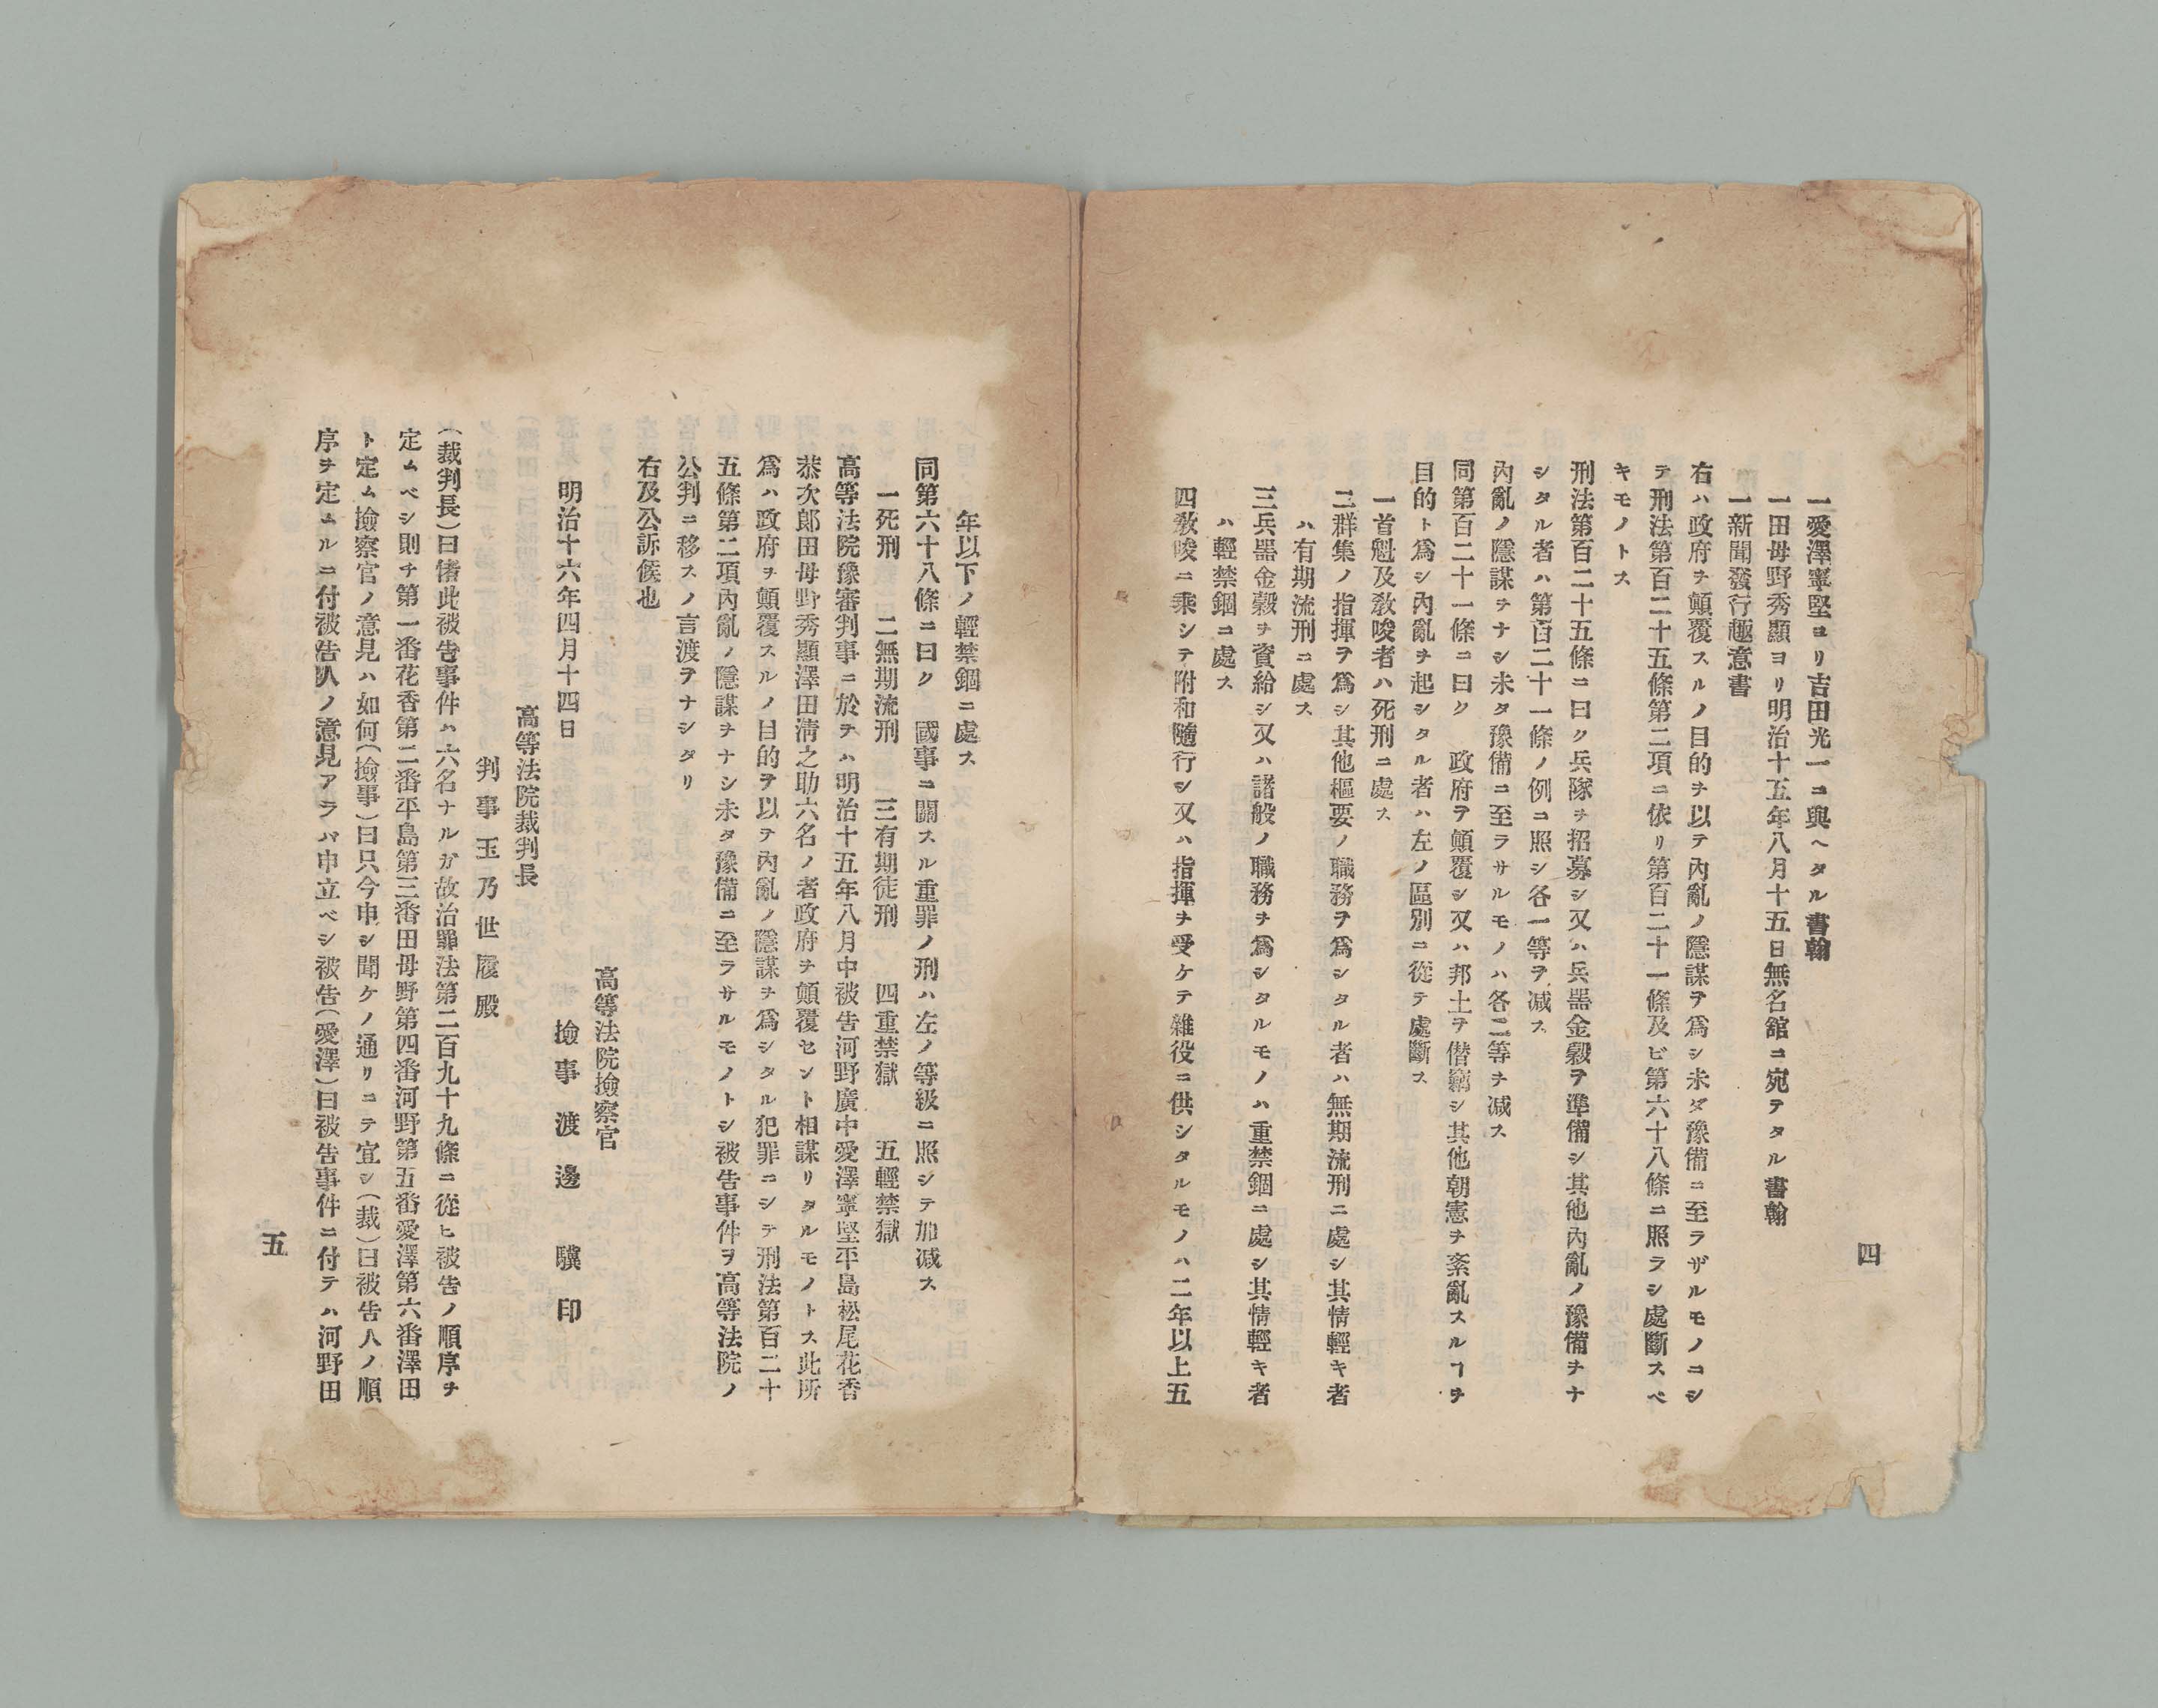 四
一愛澤寧堅ヨリ吉田光一ニ與ヘタル書翰
一田母野秀顯ヨリ明治十五年八月十五日無名舘ニ宛テタル書翰
一新聞發行趣意書
右ハ政府ヲ顛覆スルノ目的ヲ以テ內亂ノ隱謀ヲ爲シ未ダ豫備ニ至ラザルモノニシ
テ刑法第百二十五條第二項ニ依リ第百二十一條及ビ第六十八條ニ照ラシ處斷スベ
キモノトス
刑法第百二十五條ニ曰ク兵隊ヲ招募シ又ハ兵噐金穀ヲ準備シ其他內亂ノ豫備ヲナ
シタル者ハ第百二十一條ノ例ニ照シ各一等ヲ减ス
內亂ノ隱謀ヲナシ未タ豫備ニ至ラサルモノハ各二等ヲ减ス
同第百二十一條ニ曰ク　政府ヲ顛覆シ又ハ邦土ヲ僣竊シ其他朝憲ヲ紊亂スルヿヲ
目的ト爲シ內亂ヲ起シタル者ハ左ノ區別ニ從テ處斷ス
一首魁及敎唆者ハ死刑ニ處ス
二群集ノ指揮ヲ爲シ其他樞要ノ職務ヲ爲シタル者ハ無期流刑ニ處シ其情輕キ者
ハ有期流刑ニ處ス
三兵噐金穀ヲ資給シ又ハ諸般ノ職務ヲ爲シタルモノハ重禁錮ニ處シ其情輕キ者
ハ輕禁錮ニ處ス
四敎唆ニ乘シテ附和隨行シ又ハ指揮ヲ受ケテ雜役ニ供シタルモノハ二年以上五
年以下ノ輕禁錮ニ處ス
同第六十八條ニ曰ク　國事ニ關スル重罪ノ刑ハ左ノ等級ニ照シテ加减ス
一死刑　二無期流刑　三有期徒刑　四重禁獄　五輕禁獄
高等法院豫審判事ニ於テハ明治十五年八月中被告河野廣中愛澤寧堅平島松尾花香
恭次郎田母野秀顯澤田淸之助六名ノ者政府ヲ顛覆セント相謀リタルモノトス此所
爲ハ政府ヲ顛覆スルノ目的ヲ以テ內亂ノ隱謀ヲ爲シタル犯罪ニシテ刑法第百二十
五條第二項內亂ノ隱謀ヲナシ未タ豫備ニ至ラサルモノトシ被告事件ヲ高等法院ノ
公判ニ移スノ言渡ヲナシタリ
右及公訴候也
高等法院撿察官
明治十六年四月十四日　撿事　渡邊　驥　印
高等法院裁判長
判事玉乃世履殿
（裁判長）曰偖此被告事件ハ六名ナルガ故治罪法第二百九十九條ニ從ヒ被告ノ順序ヲ
定ムベシ則チ第一番花香第二番平島第三番田母野第四番河野第五番愛澤第六番澤田
ト定ム撿察官ノ意見ハ如何（撿事）曰只今申シ聞ケノ通リニテ宜シ（裁）曰被告人ノ順
序ヲ定ムルニ付被告人ノ意見アラバ申立ベシ被告（愛澤）曰被告事件ニ付テハ河野田
五